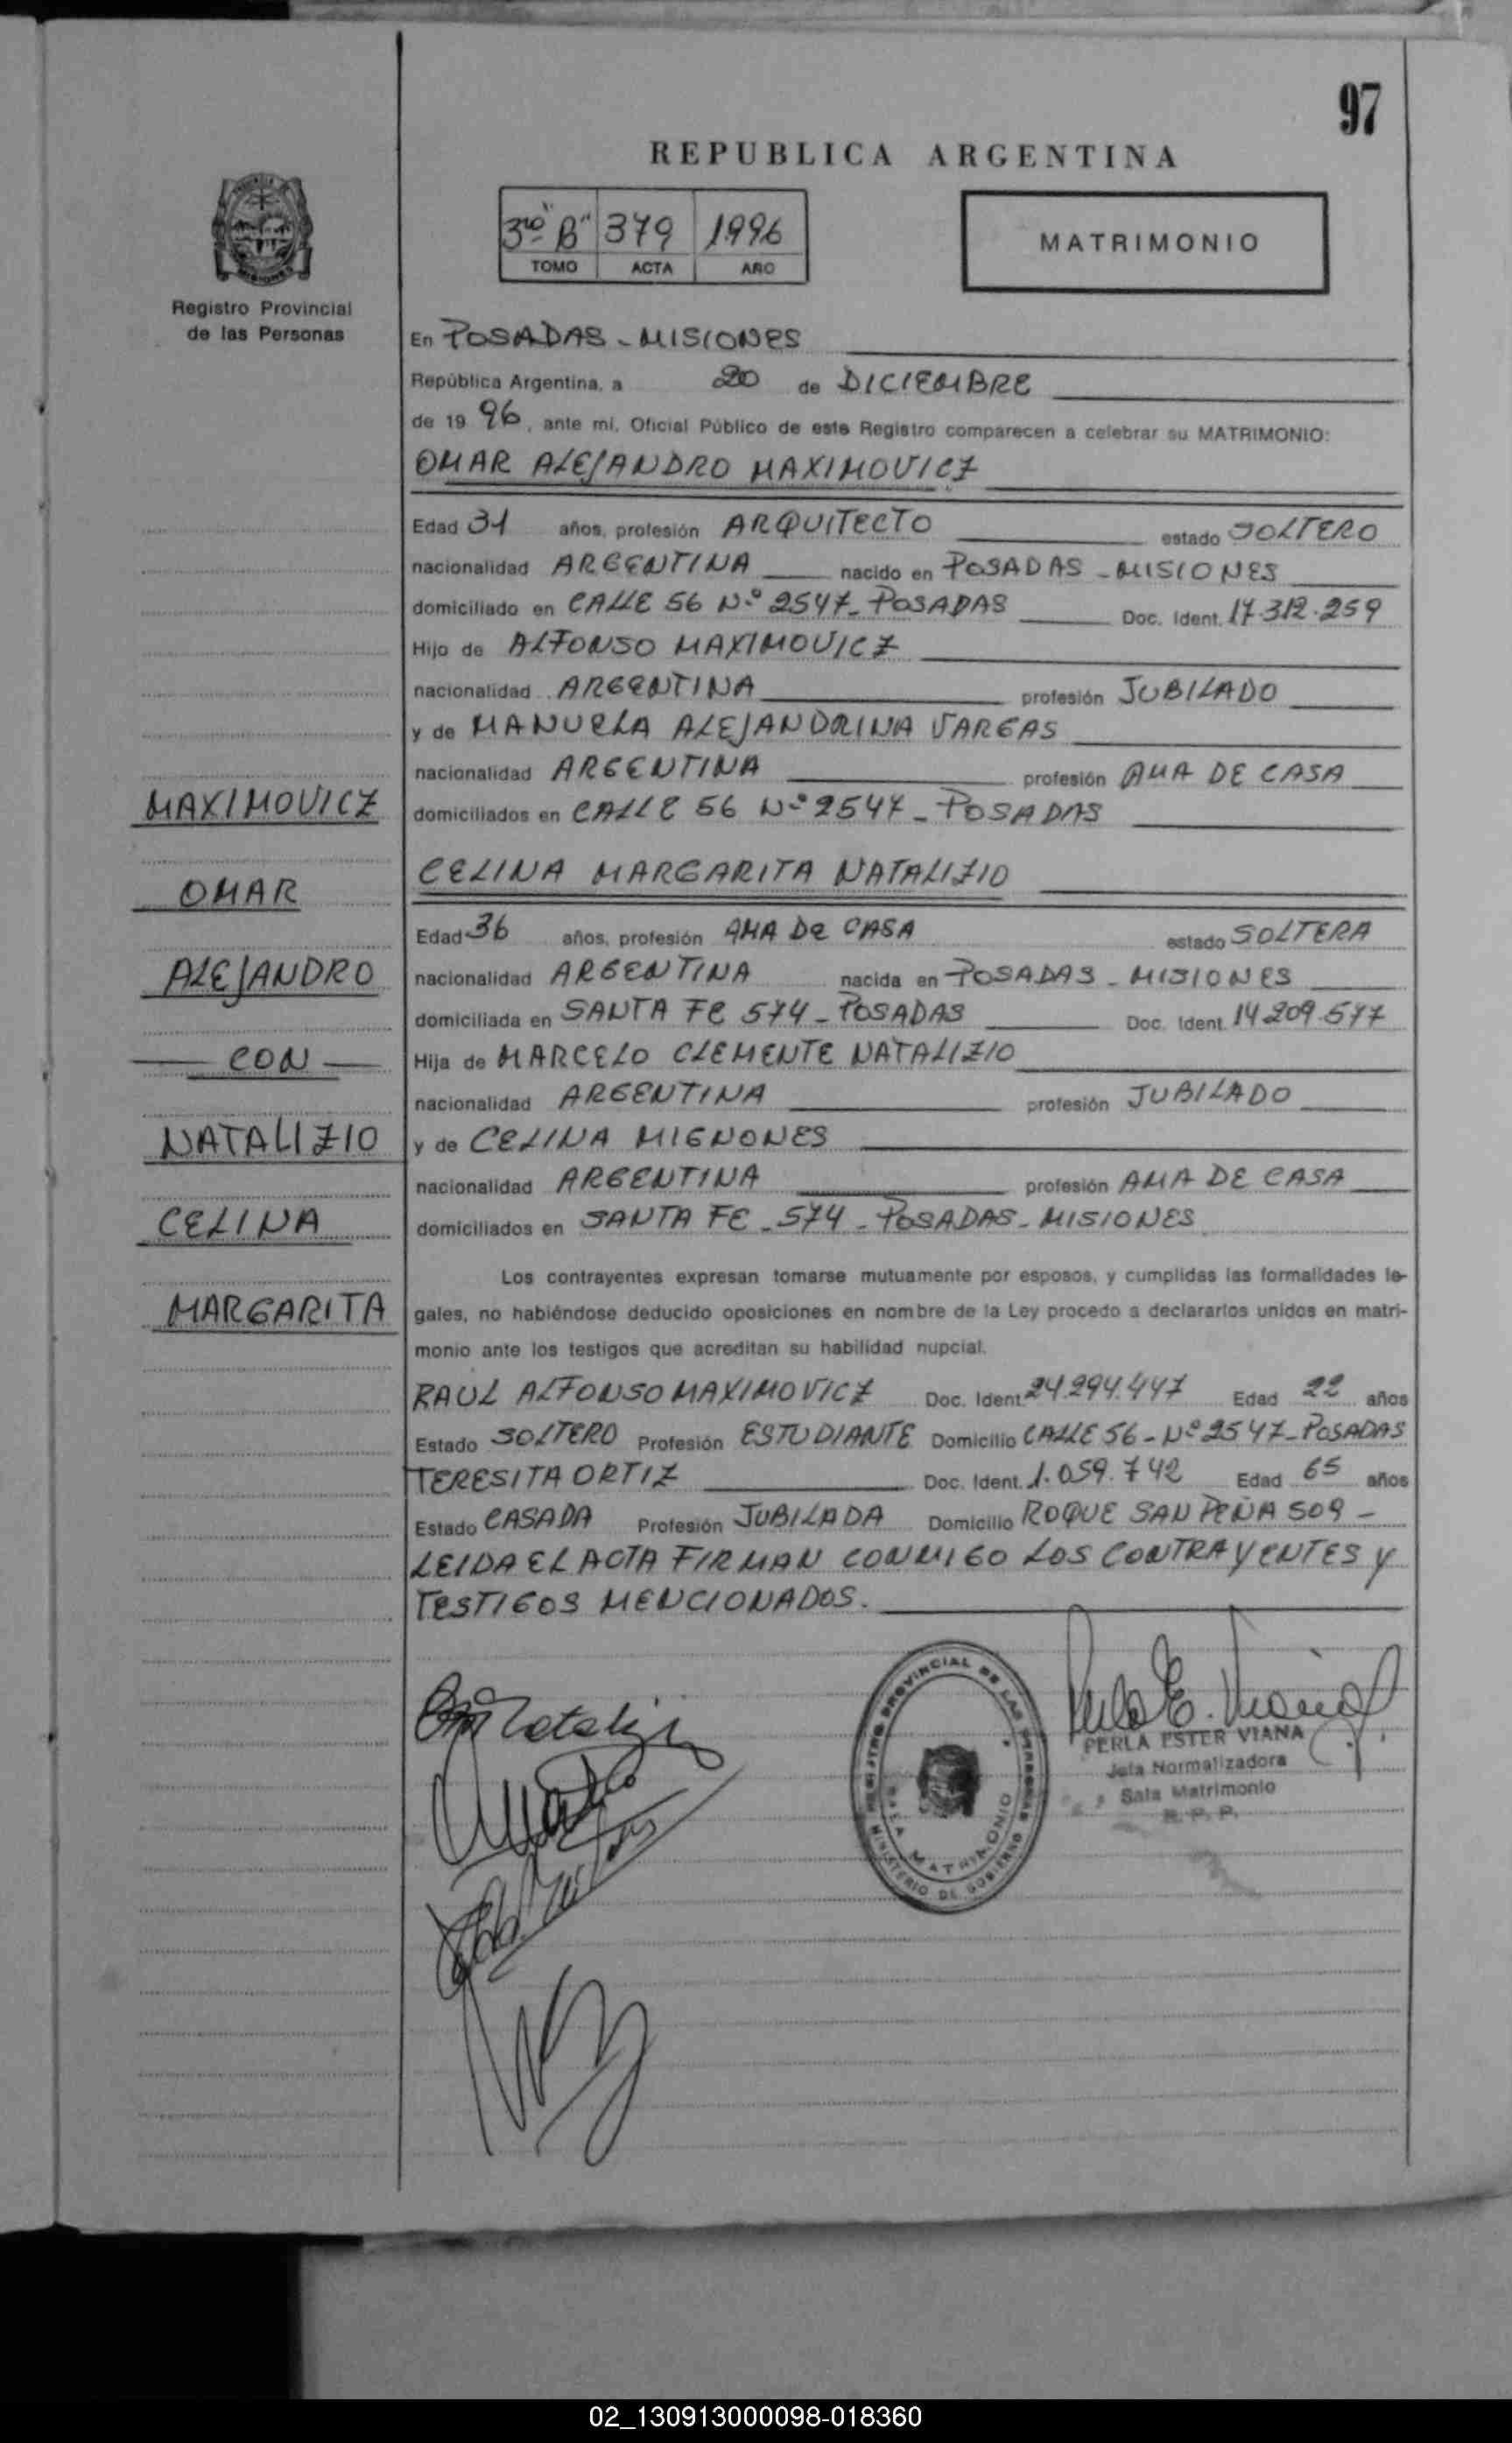 97
REPUBLICA ARGENTINA
3ro "B" 379 1996
TOMO ACTA AÑO
MATRIMONIO
Registro Provincial
de las Personas
En POSADAS - MISIONES
República Argentina, a 20 de DICIEMBRE
de 19 96, ante mí, Oficial Público de este Registro comparecen a celebrar su MATRIMONIO:
OMAR ALEJANDRO MAXIMOVICZ
Edad 31 años, profesión ARQUITECTO estado SOLTERO
nacionalidad ARGENTINA nacido en POSADAS - MISIONES
domiciliado en CALLE 56 Nº 2547 - POSADAS Doc. Ident. 17.312.259
Hijo de ALFONSO MAXIMOVICZ
nacionalidad ARGENTINA profesión JUBILADO
y de MANUELA ALEJANDRINA VARGAS
nacionalidad ARGENTINA profesión AMA DE CASA
domiciliados en CALLE 56 Nº 2547 - POSADAS
CELINA MARGARITA NATALIZIO
Edad 36 años, profesión AMA DE CASA estado SOLTERA
nacionalidad ARGENTINA nacida en POSADAS - MISIONES
domiciliada en SANTA FE 574 - POSADAS Doc. Ident. 14.209.577
Hija de MARCELO CLEMENTE NATALIZIO
nacionalidad ARGENTINA profesión JUBILADO
y de CELINA MIGNONES
nacionalidad ARGENTINA profesión AMA DE CASA
domiciliados en SANTA FE - 574 - POSADAS - MISIONES
Los contrayentes expresan tomarse mutuamente por esposos, y cumplidas las formalidades le-
gales, no habiéndose deducido oposiciones en nombre de la Ley procedo a declararlos unidos en matri-
monio ante los testigos que acreditan su habilidad nupcial.
RAUL ALFONSO MAXIMOVICZ Doc. Ident. 24.294.447 Edad 22 años
Estado SOLTERO Profesión ESTUDIANTE Domicilio CALLE 56 - Nº 2547 - POSADAS
TERESITA ORTIZ Doc. Ident. 1.059.742 Edad 65 años
Estado CASADA Profesión JUBILADA Domicilio ROQUE SAN PEÑA 509 -
LEIDA EL ACTA FIRMAN CONMIGO LOS CONTRAYENTES Y
TESTIGOS MENCIONADOS.
MAXIMOVICZ
OMAR
ALEJANDRO
CON
NATALIZIO
CELINA
MARGARITA
REGISTRO PROVINCIAL DE LAS PERSONAS
SALA MATRIMONIO
MINISTERIO DE GOBIERNO
PERLA ESTER VIANA
Jefa Normalizadora
Sala Matrimonio
R. P. P.
02_130913000098-018360